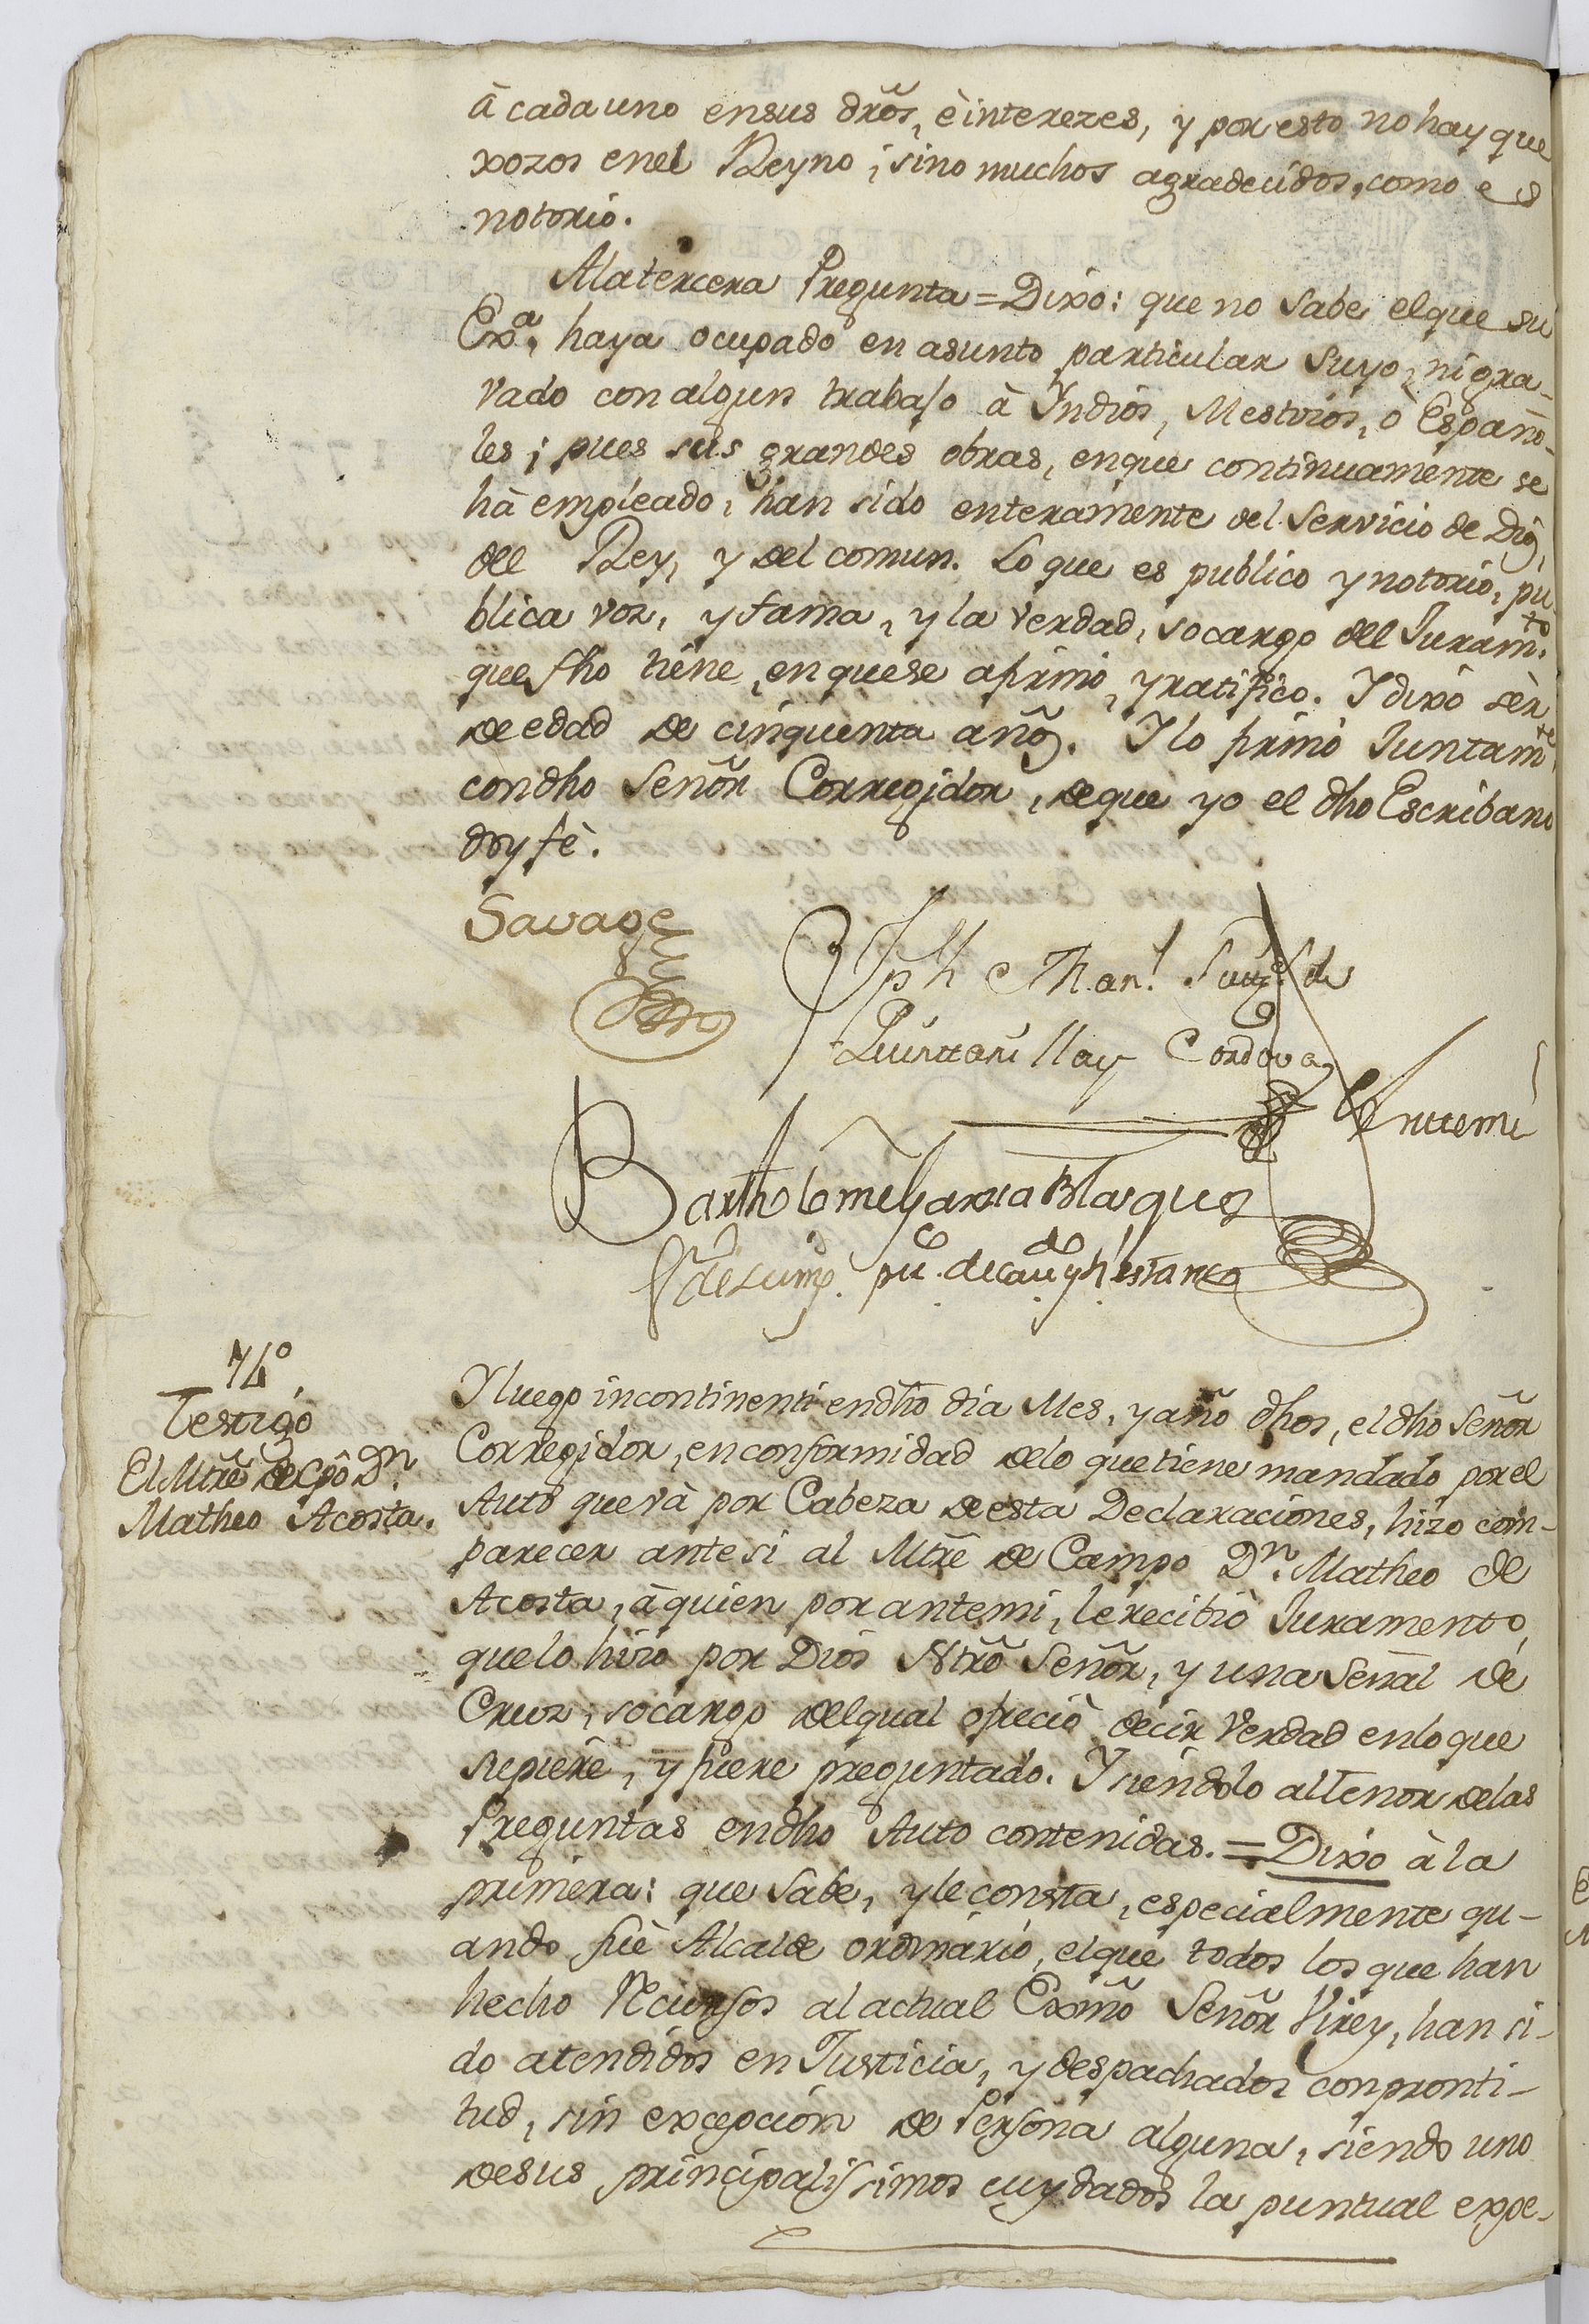 à cada uno en sus dr̃os, è interezes, y por esto no hay que
xozos en el Reyno, sino muchos agradecidos, como es
notorio.
A la tercera Pregunta = Dixo: que no sabe el que su
Exa. haya ocupado en asunto particular suyo, ni gra-
vado con algun trabajo à Yndios, Mestizos, ò Españo-
les; pues sus grandes obras, en que continuamente se
hà empleado, han sido enteramente del Servicio de Dios,
del Rey, y del comun. Lo que es publico y notorio, pu-
blica voz, y fama, y la verdad, socargo del Juramto.
que fho tiene, en que se afirmò, y ratificò. Y dixo sèr
de edad de cinquenta años. Y lo firmò Juntamte
con dho Señor Corregidor, de que yo el dho Escribano
doy fè.
Savage
Jph Man.l de
Quintanilla y Cordova
Antemi
Bartholome Garzia Blasques
pu.co de cav.do y
14º
Testigo
El Mtrẽ de Cpô Dn.
Matheo Acosta.
Y luego incontinenti en dho dia Mes, y año dhos, el dho Señor
Corregidor, en conformidad de lo que tiene mandado por el
Auto que và por Cabeza de esta Declaraciones, hizo com-
parecer ante si al Mtrẽ de Campo Dn. Matheo de
Acosta, à quien por antemi, le recibiò Juramento,
que lo hizo por Dios Ntrõ Señor, y una Señal de
Cruz, socargo del qual ofreciò decir Verdad en lo que
supiere, y fuere preguntado. Y siendolo al Tenor de las
Preguntas en dho Auto contenidas. = Dixo à la
primera: que sabe, y le consta, especialmente qu-
ando fuè Alcalde ordinario, el que todos los que han
hecho Recursos al actual Exmõ Señor Virey, han si-
do atendidos en Justicia, y despachados con pronti-
tud, sin excepcion de Persona alguna, siendo uno
de sus principalissimos cuydados la puntual expe-